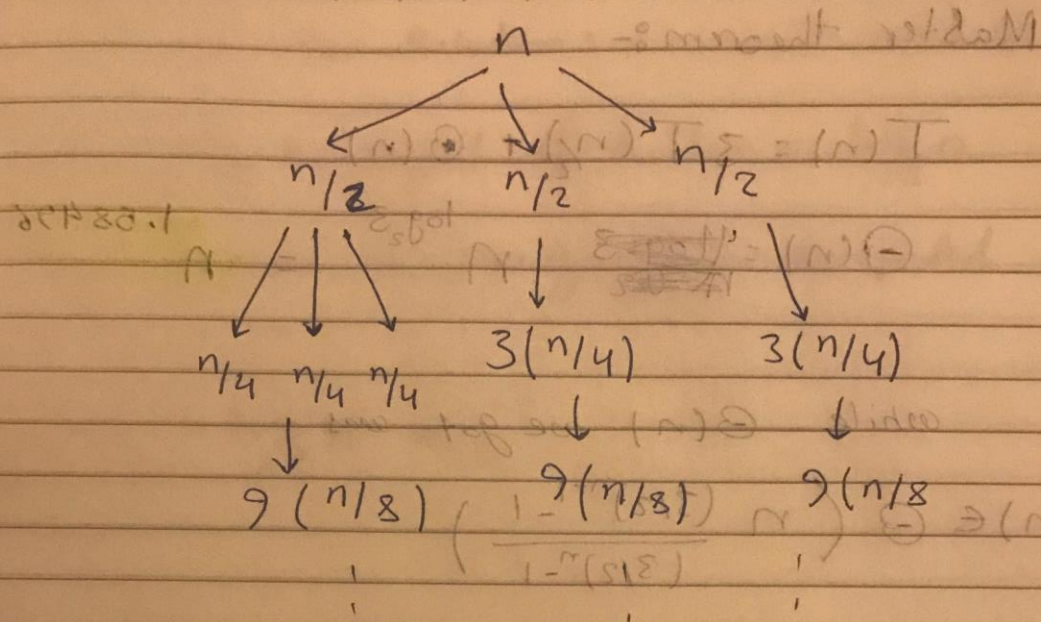 n
n/2 n/2 n/2
n/4 n/4 n/4 3(n/4) 3(n/4)
9(n/8) 9(n/8) 9(n/8